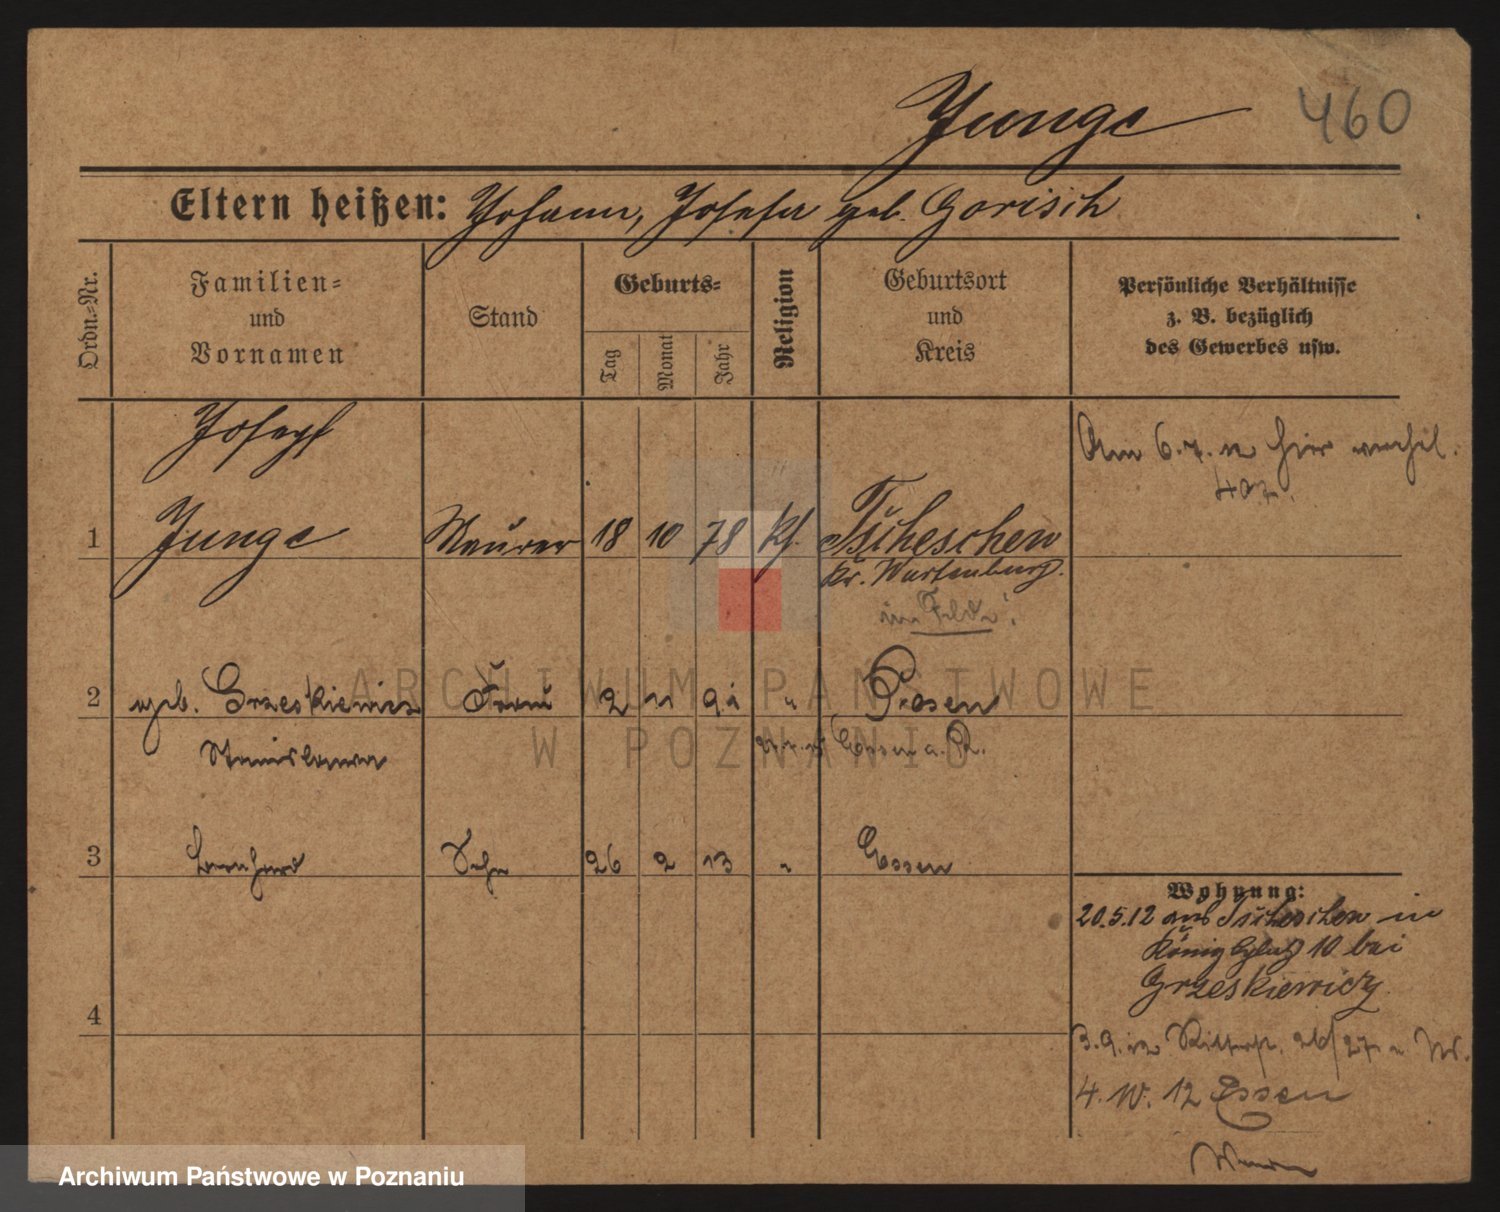 Junge
460
Eltern heißen: Johann, Josefa geb. Gorisch
Ordn.-Nr.
Familien-
und
Vornamen
Stand
Geburts-
Tag
Monat
Jahr
Religion
Geburtsort
und
Kreis
Persönliche Verhältnisse
z. B. bezüglich
des Gewerbes usw.
Joseph
Am 6.7.12 hier verhel.
1 Junge Maurer 18 10 78 kf. Tscheschen
Kr. Wartenburg
im Felde!
2 geb. Grzeskiewicz Frau 2 11 91 " Posen
Stanislawa
Essen a. R.
3 Bernhard Sohn 26 2 13 " Essen
Wohnung:
20.5.12 aus Tscheschen in
Königsplatz 10 bei
Grzeskiewicz
4
3.9.12 Ritterst. 26/27
4. 10. 12 Essen
ARCHIWUM PAŃSTWOWE
W POZNANIU
Archiwum Państwowe w Poznaniu